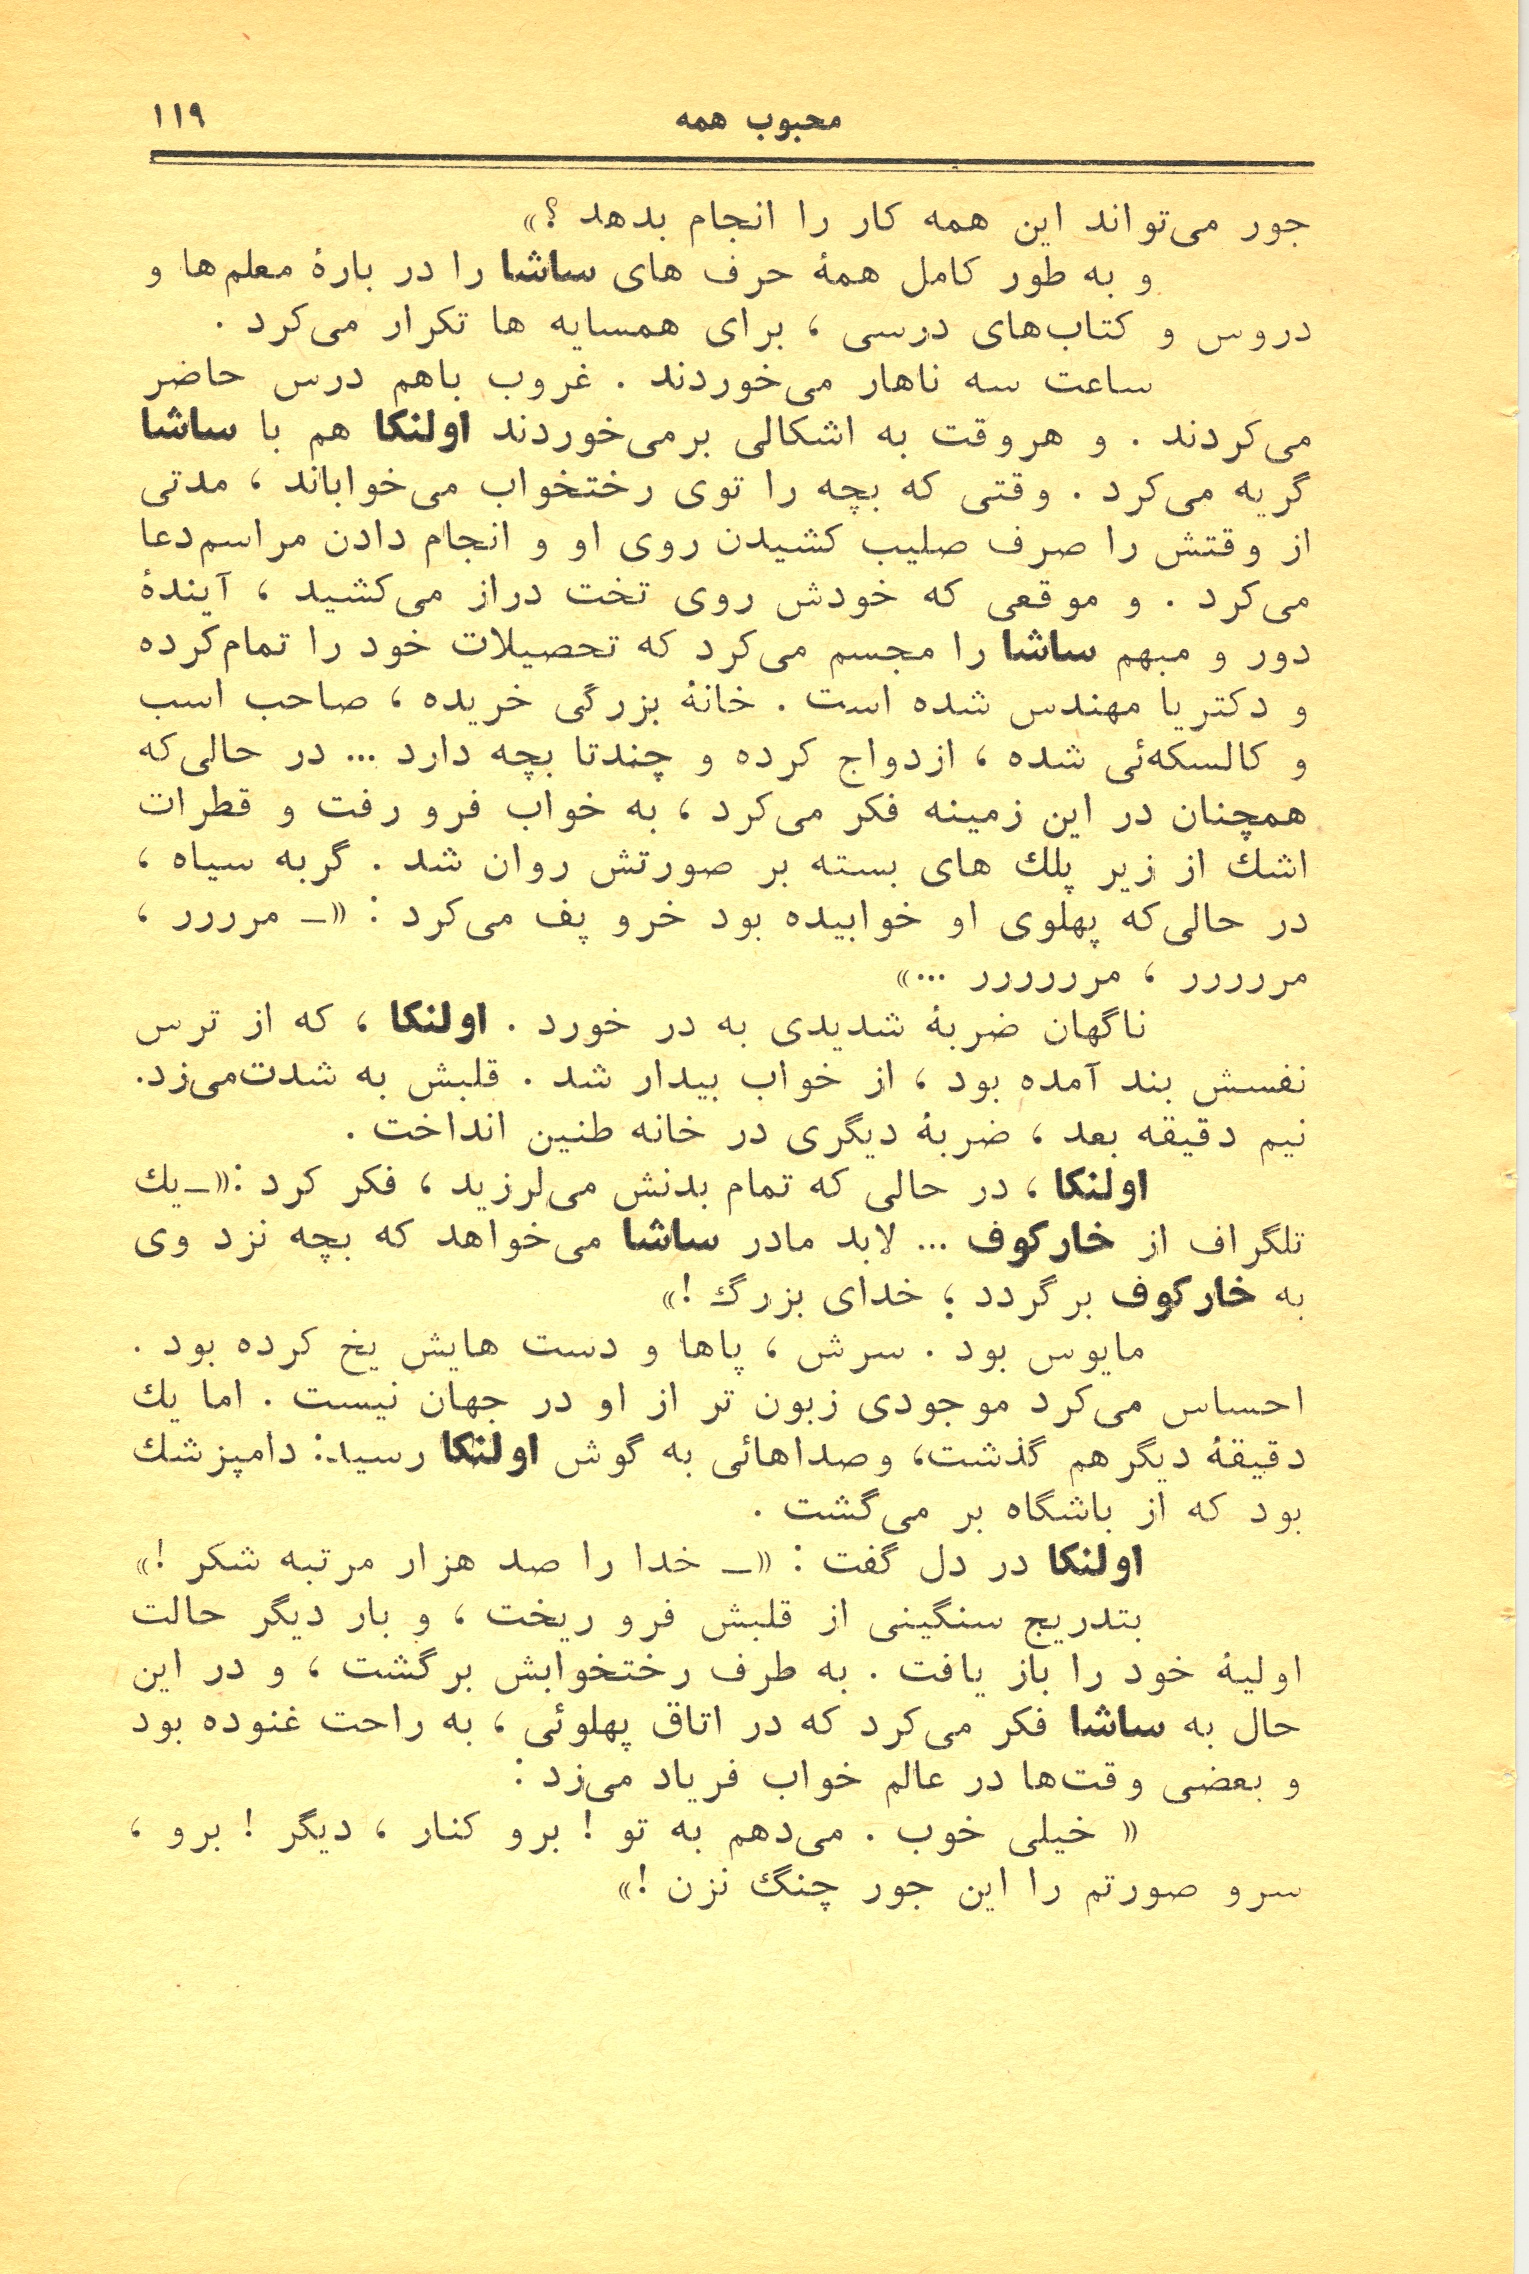 محبوب همه ۱۱۹
جور می‌تواند این همه کار را انجام بدهد ؟»
و به طور کامل همهٔ حرف های ساشا را در بارهٔ معلم‌ها و
دروس و کتاب‌های درسی ، برای همسایه ها تکرار می‌کرد .
ساعت سه ناهار می‌خوردند . غروب باهم درس حاضر
می‌کردند . و هروقت به اشکالی برمی‌خوردند اولنکا هم با ساشا
گریه می‌کرد . وقتی که بچه را توی رختخواب می‌خواباند ، مدتی
از وقتش را صرف صلیب کشیدن روی او و انجام دادن مراسم‌دعا
می‌کرد . و موقعی که خودش روی تخت دراز می‌کشید ، آیندهٔ
دور و مبهم ساشا را مجسم می‌کرد که تحصیلات خود را تمام‌کرده
و دکتریا مهندس شده است . خانهٔ بزرگی خریده ، صاحب اسب
و کالسکه‌ئی شده ، ازدواج کرده و چندتا بچه دارد ... در حالی‌که
همچنان در این زمینه فکر می‌کرد ، به خواب فرو رفت و قطرات
اشك از زیر پلك های بسته بر صورتش روان شد . گربه سیاه ،
در حالی‌که پهلوی او خوابیده بود خرو پف می‌کرد : «ــ مرررر ،
مررررر ، مرررررر ...»
ناگهان ضربهٔ شدیدی به در خورد . اولنکا ، که از ترس
نفسش بند آمده بود ، از خواب بیدار شد . قلبش به شدت‌می‌زد.
نیم دقیقه بعد ، ضربهٔ دیگری در خانه طنین انداخت .
اولنکا ، در حالی که تمام بدنش می‌لرزید ، فکر کرد :«ــ‌یك
تلگراف از خارکوف ... لابد مادر ساشا می‌خواهد که بچه نزد وی
به خارکوف برگردد ؛ خدای بزرگ !»
مایوس بود . سرش ، پاها و دست هایش یخ کرده بود .
احساس می‌کرد موجودی زبون تر از او در جهان نیست . اما یك
دقیقهٔ دیگرهم گذشت، وصداهائی به گوش اولنکا رسید: دامپزشك
بود که از باشگاه بر می‌گشت .
اولنکا در دل گفت : «ــ خدا را صد هزار مرتبه شکر !»
بتدریج سنگینی از قلبش فرو ریخت ، و بار دیگر حالت
اولیهٔ خود را باز یافت . به طرف رختخوابش برگشت ، و در این
حال به ساشا فکر می‌کرد که در اتاق پهلوئی ، به راحت غنوده بود
و بعضی وقت‌ها در عالم خواب فریاد می‌زد :
« خیلی خوب . می‌دهم به تو ! برو کنار ، دیگر ! برو ،
سرو صورتم را این جور چنگ نزن !»